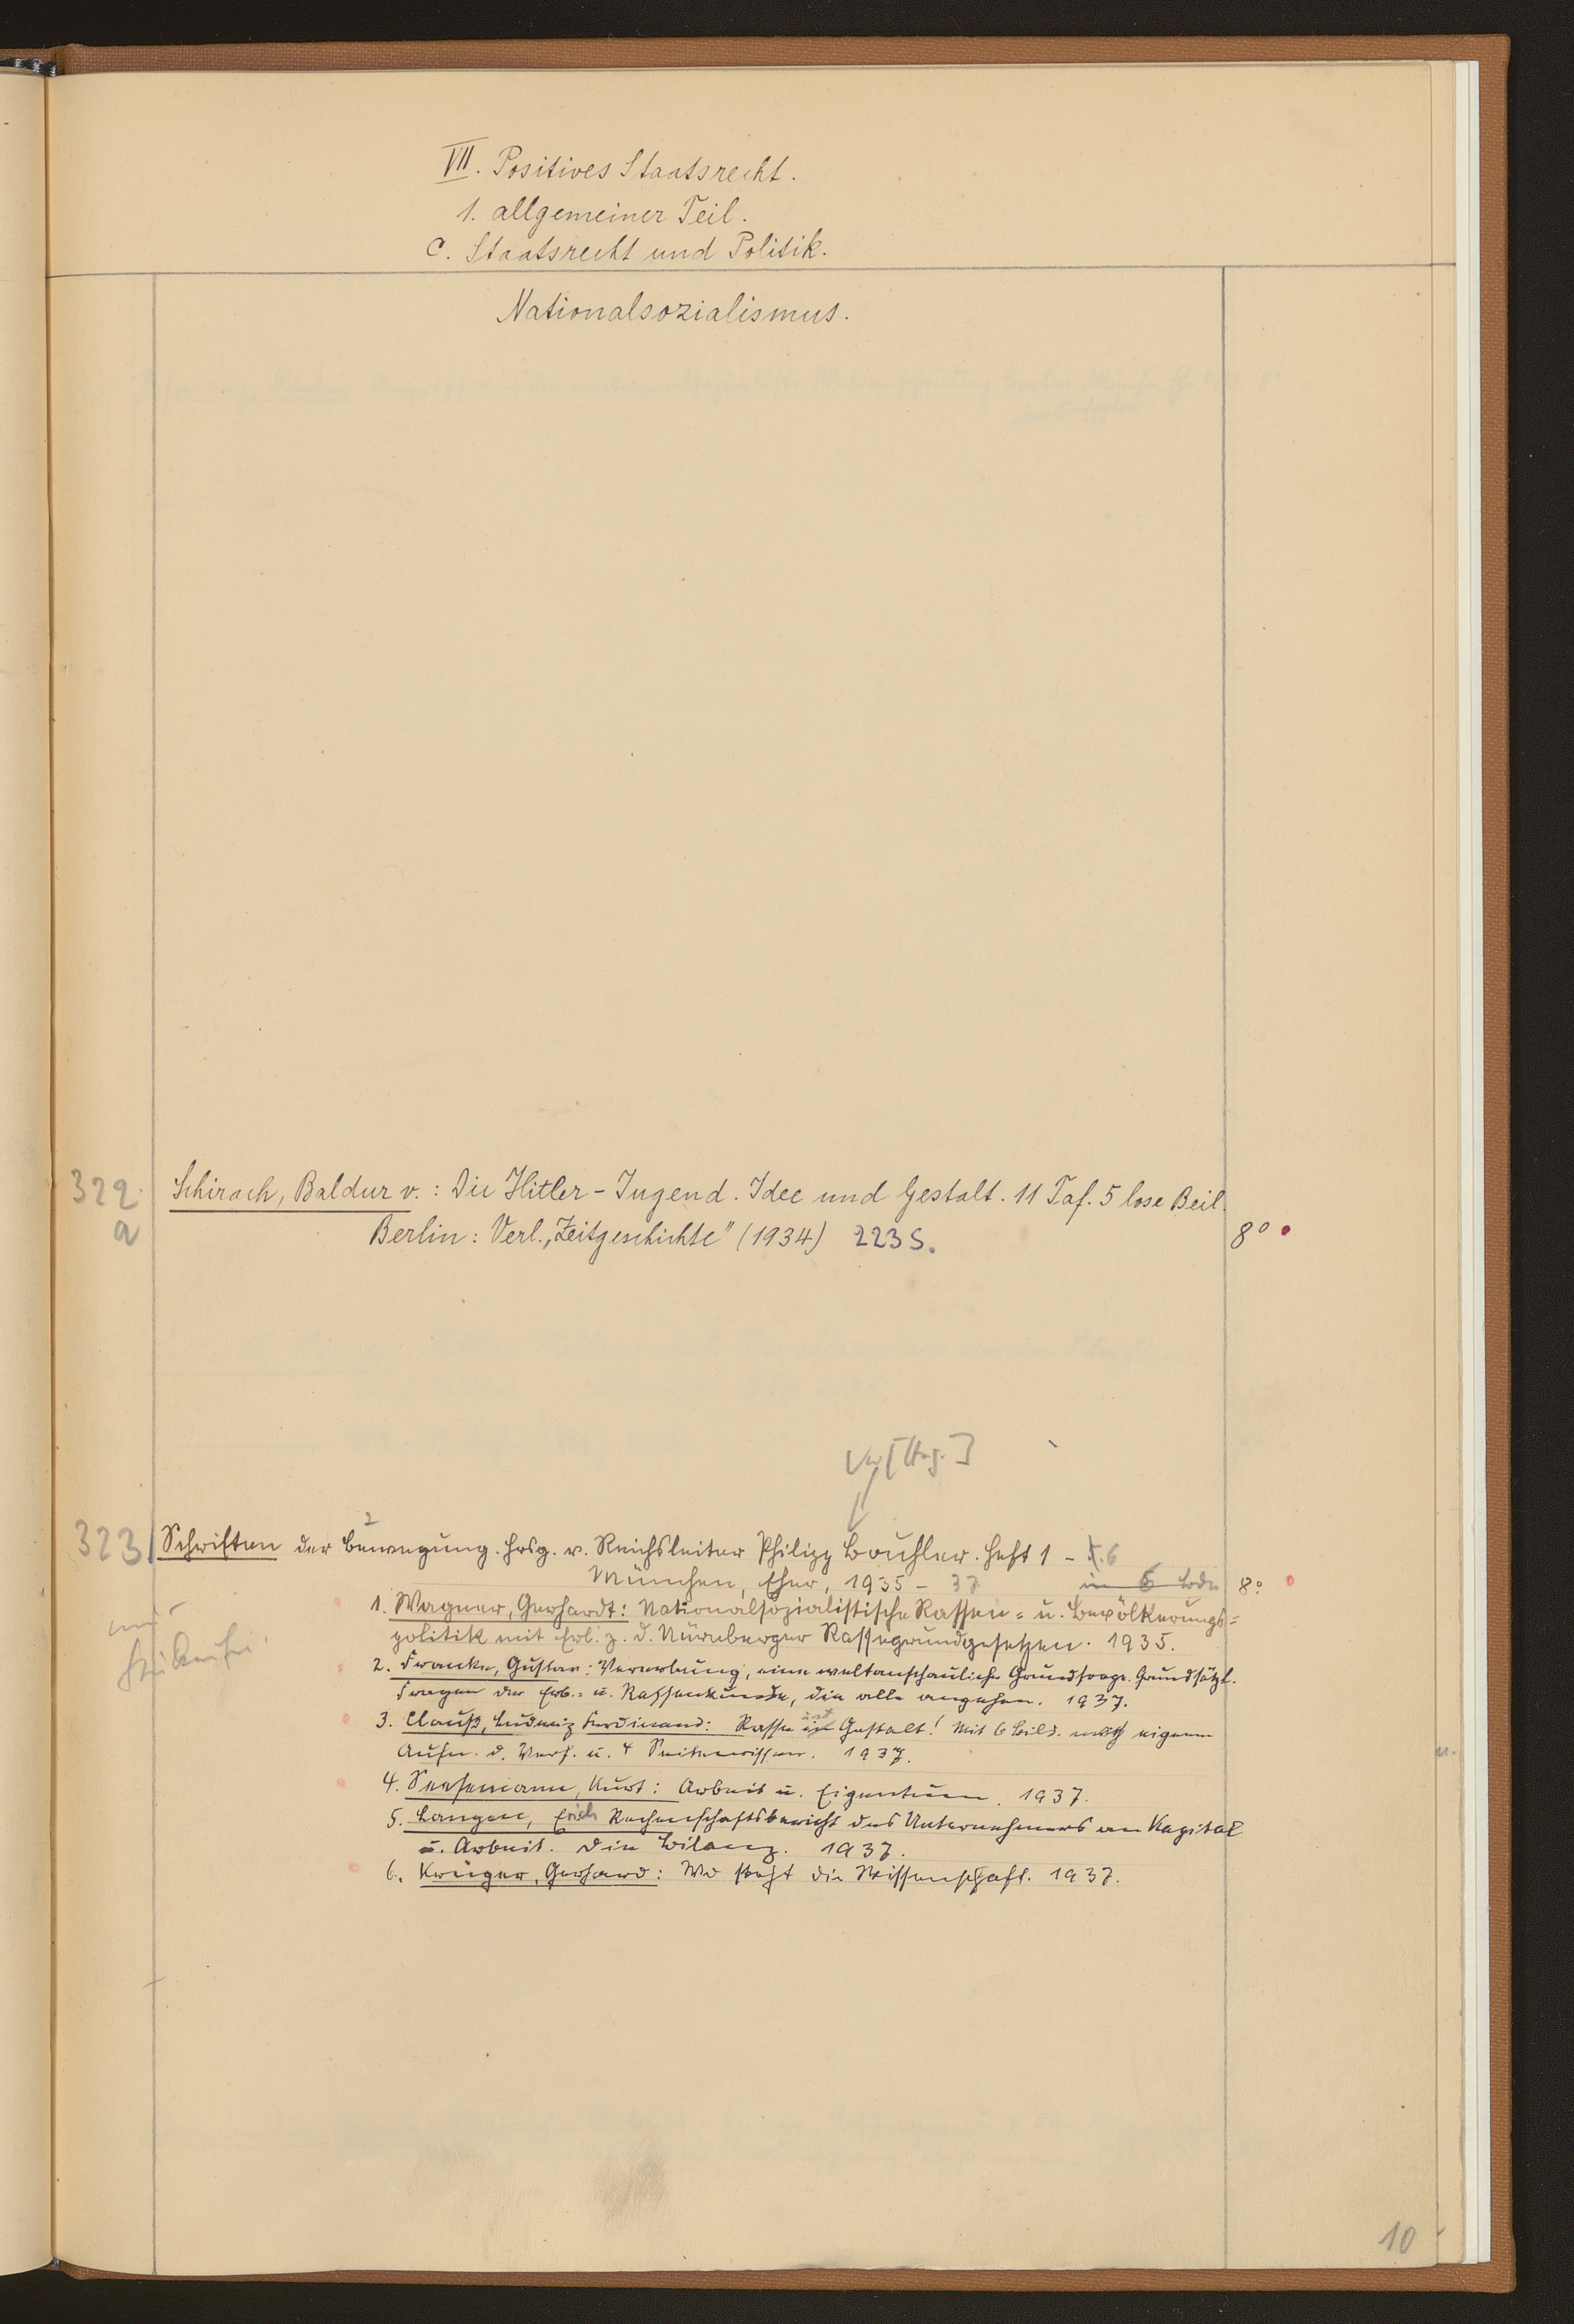 VII. Positives Staatsrecht.
1. allgemeiner Teil.
C. Staatsrecht und Politik.
Nationalsozialismus.
322
a
Schirach, Baldur v.: Die Hitler-Jugend. Idee und Gestalt. 11 Taf. 5 lose Beil.
Berlin: Verl. „Zeitgeschichte" (1934) 223 S.
8°
323
2
Schriften der Bewegung. Hrsg. v. Reichsleiter Philipp Bouhler. Heft 1 - 6
München, Eher, 1935 - 37 in 6 Bdn 8°
1. Wagner, Gerhardt: Nationalsozialistische Rassen= u. Bevölkerungs=
politik mit Erl. z. d. Nürnberger Rassegrundgesetzen. 1935.
2. Francke, Gustav: Vererbung, eine weltanschauliche Grundfrage. Grundsätzl.
Fragen der Erb.= u. Rassenkunde, die alle angehen. 1937.
3. Clauß, Ludwig Ferdinand: Rasse ist Gestalt! Mit 6 Bild. nach eigenen
Aufn. d. Verf. u. 4 1937.
4. Seesemann, Kurt: Arbeit u. Eigentum. 1937.
5. Langen, Erich Rechenschaftsbericht des Unternehmers an Kapital
u. Arbeit. Die Bilanz. 1937.
6. Krüger, Gerhard: Wo steht die Wissenschaft. 1937.
10